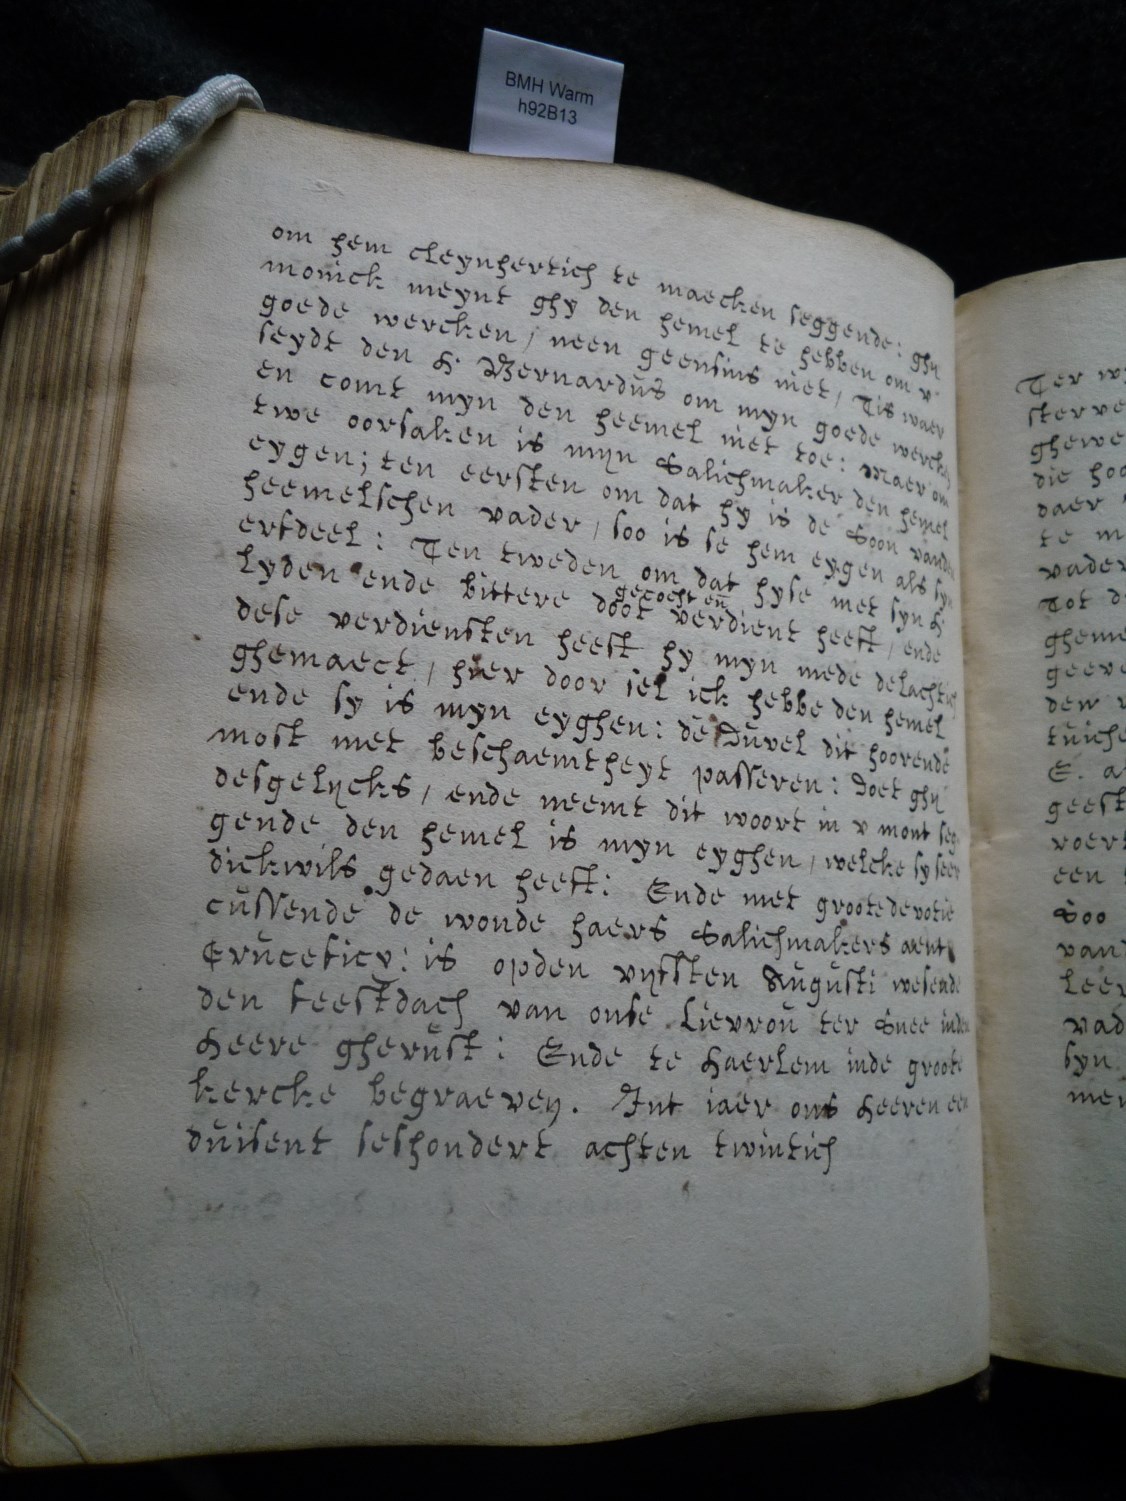 BMH Warm
h92B13
om hem cleynhertich te maecken seggende: ghy
monick meynt ghy den hemel te hebben om v
goede wercken / neen geensins niet / Tis waer
seydt den H. Bernardus om myn goede wercken
en comt myn den heemel niet toe: maer om
twe oorsaken is myn Salichmaker den hemel
eygen; ten eersten om dat hy is de Soon vanden
heemelschen vader / soo is se hem eygen als syn
erfdeel: Ten tweden om dat hyse met syn H
gecocht en
lyden ende bittere doot verdient heeft / ende
dese verdiensten heeft hy myn mede delachtich
ghemaect / hier door sel ick hebbe den hemel
ende sy is myn eyghen: de Duvel dit hoorende
most met beschaemtheyt passeren: Doet ghy
desgelycks / ende neemt dit woort in v mont seg
gende den hemel is myn eyghen / welcke sy seer
dickwils gedaen heeft: Ende met groote devotie
cussende de wonde haers Salichmakers aent
Cruceficx: is opden vyfsten Augusti wesende
den feestdach van onse Lievrou ter Snee inden
Heere gherust: Ende te Haerlem inde groote
kercke begraeven. Int iaer ons Heeren een
duisent seshondert achten twintich
Ter
sterve
ghewe
die hoo
daer
te m
vader
Tot d
gheme
geeve
den
tuiche
E. a
geest
voert
een
Soo
van
Leer
vad
syn
men